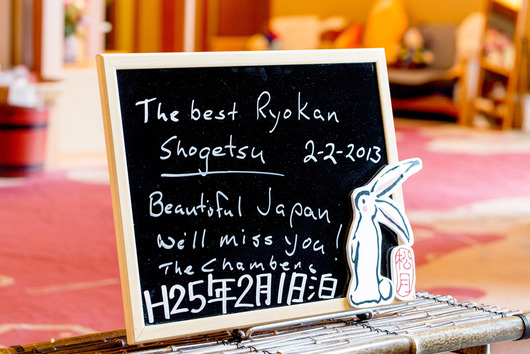 The best Ryokan
Shogetsu 2-2-2013
Beautiful Japan
we'll miss you!
The Chambers
H25年2月1日泊
松月